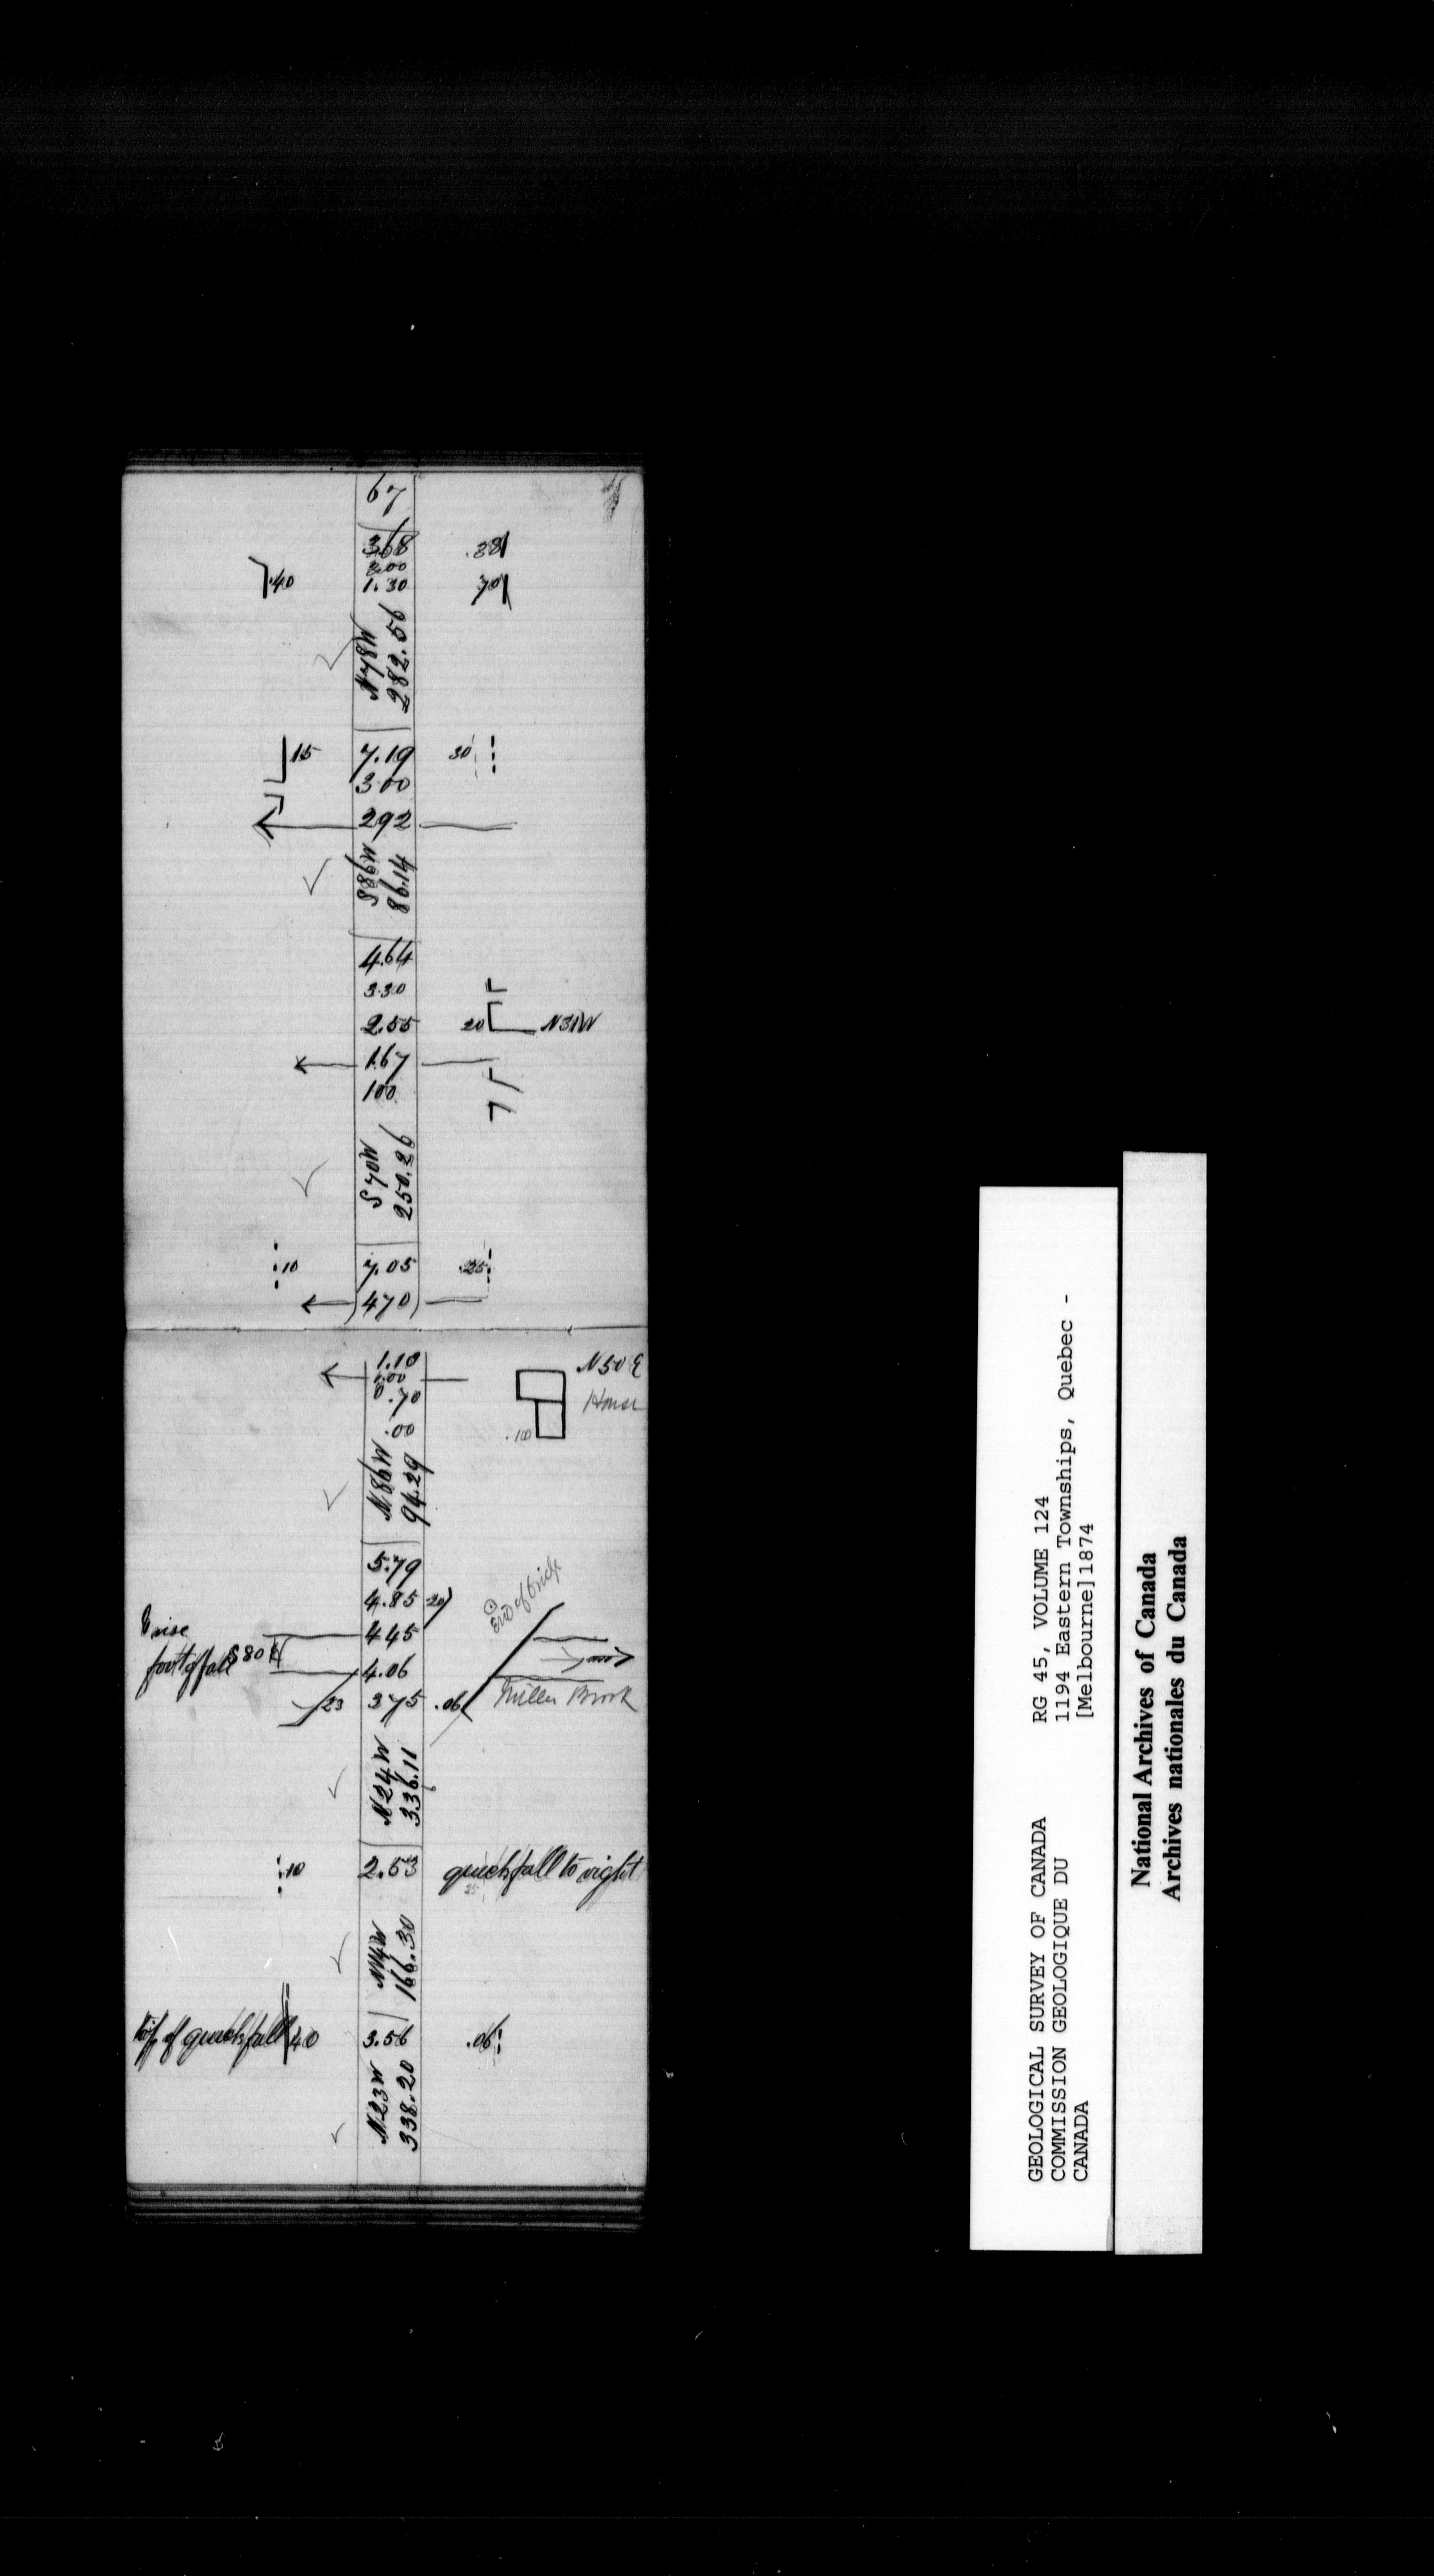 67
368 .38
3.00
.40 1.30 70
N78W
282.56
15 7.19 30
3.00
292
S86W
86.14
4.64
3.30
2.55 20 N31W
1.67
100
S70W
250.26
10 7.05 .25
470
1.10 N50E
1.00 House
0.70
.00 .10
N86W
94.29
5.79
4.85 20 End of bridge
rise 445
foot of fall S80 4.06
23 375 .06 Miller Brook
N24W
336.11
.10 2.53 quick fall to right
25
N14W
166.30
top of quick fall 40 3.56 .06
N23W
338.20
GEOLOGICAL SURVEY OF CANADA RG 45, VOLUME 124
COMMISSION GEOLOGIQUE DU 1194 Eastern Townships, Quebec -
CANADA [Melbourne]1874
National Archives of Canada
Archives nationales du Canada